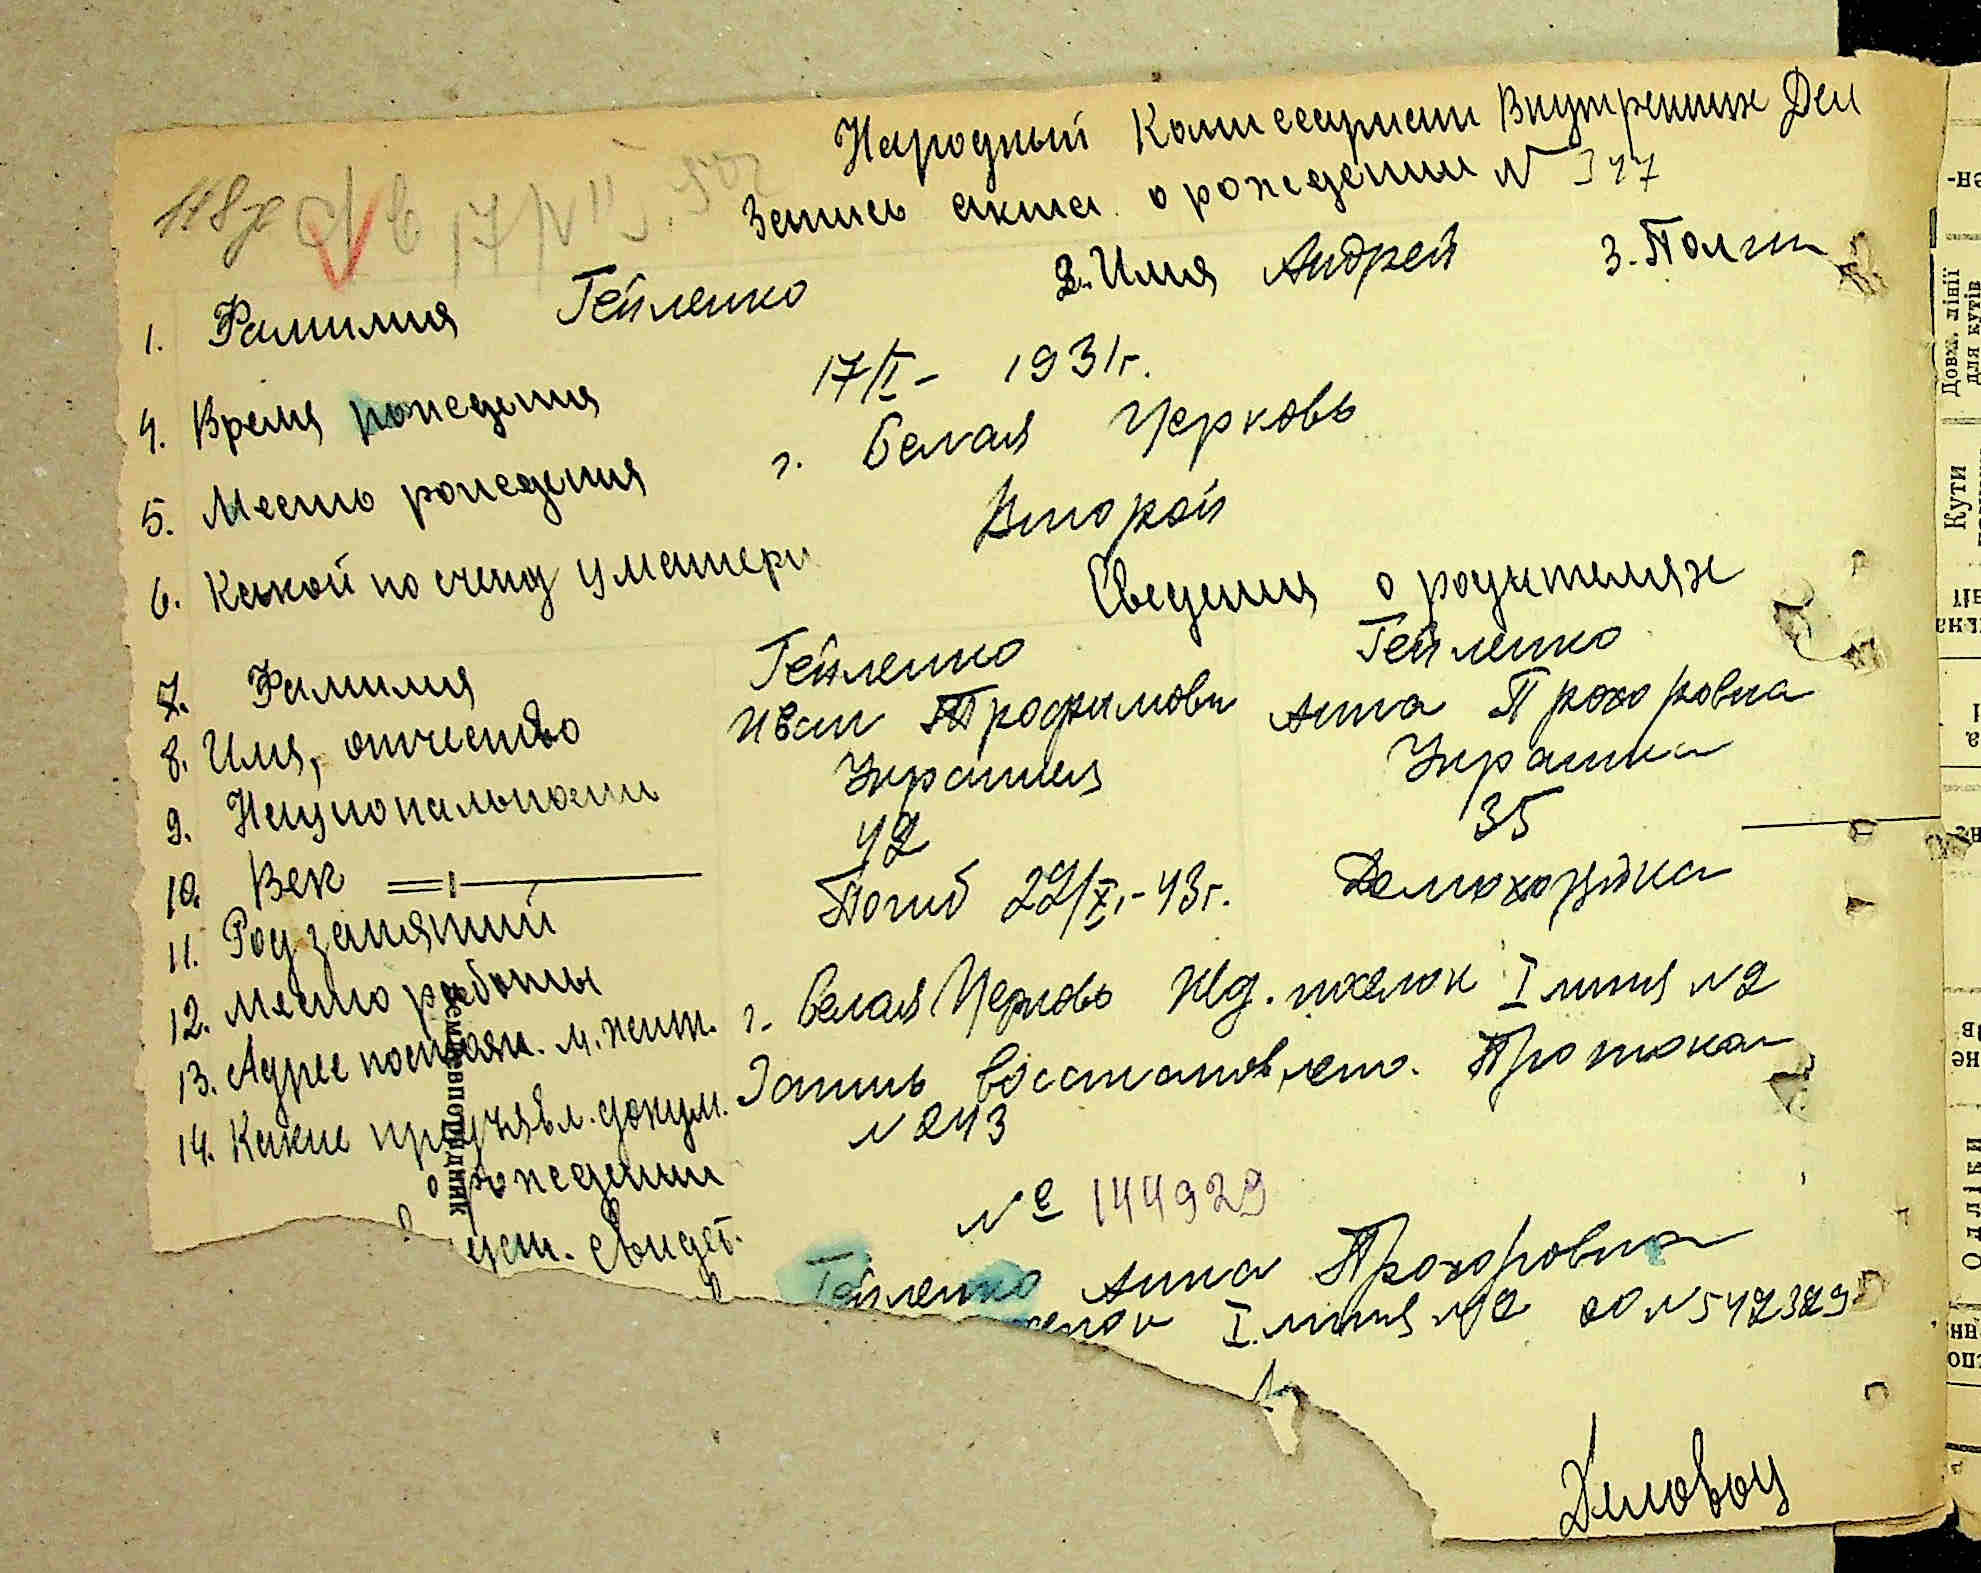 Народный Комиссариат Внутренних Дел
Запись акта о рождении N 377
1. Фамилия Гейленко 2. Имя Андрей 3. Пол м
4. Время рождения 17/II - 1931г.
5. Место рождения г. Белая Церковь
6. Какой по счету у матери Второй
Сведения о родителях
7. Фамилия Гейленко Гейленко
8. Имя, отчество Иван Трофимови Анна Прохоровна
9. Национальност Украинец Украинка
10. Век 42 35
11. Род занятий Погиб 22/X.-43г. Домохозяйка
12. Место работы
13. Адрес постоян. м. жит. г. Белая Церковь Жд. поселок I линия N2
14. Какие предъявл. докум. Запись восстановлена. Протокол
о рождении N 243
свидет. № 144929
Гейленко Анна Прохоровна
I линия N2
Деловод
Довж. лінії
для кутів
Кути